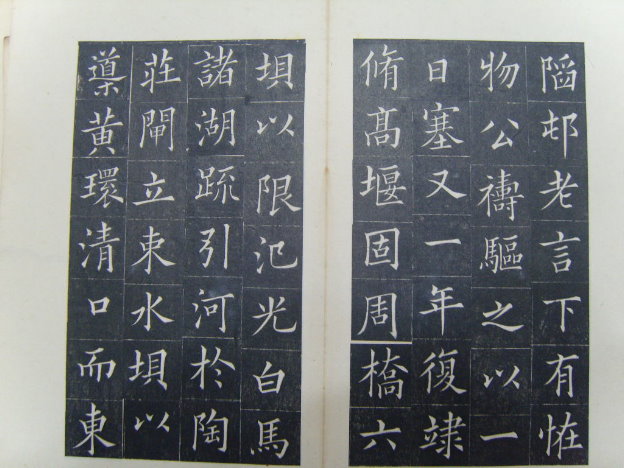 陷邨老言下有恠
物公禱驅之以一
日塞又一年復
脩髙堰固周橋六
垻以限氾光白馬
諸湖疏引河於陶
莊閘立束水垻以
導黃環清口而東